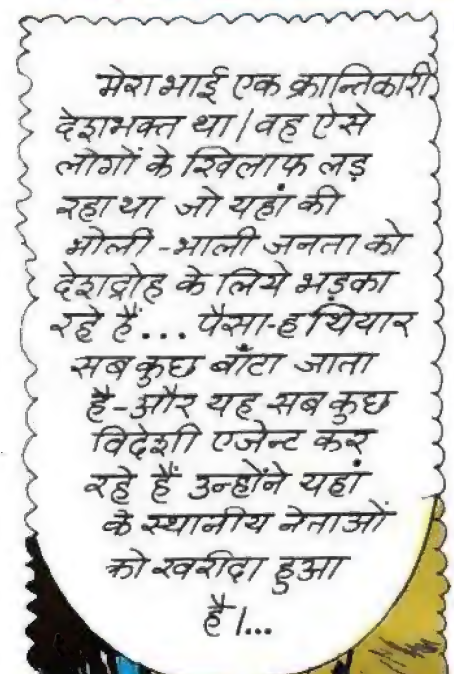 मेरा भाई एक क्रान्तिकारी
देशभक्त था। वह ऐसे
लोगों के खिलाफ लड़
रहा था जो यहां की
भोली-भाली जनता को
देशद्रोह के लिये भड़का
रहे हैं... पैसा-हथियार
सब कुछ बाँटा जाता
है-और यह सब कुछ
विदेशी एजेन्ट कर
रहे हैं उन्होंने यहां
के स्थानीय नेताओं
को खरीदा हुआ
है।...